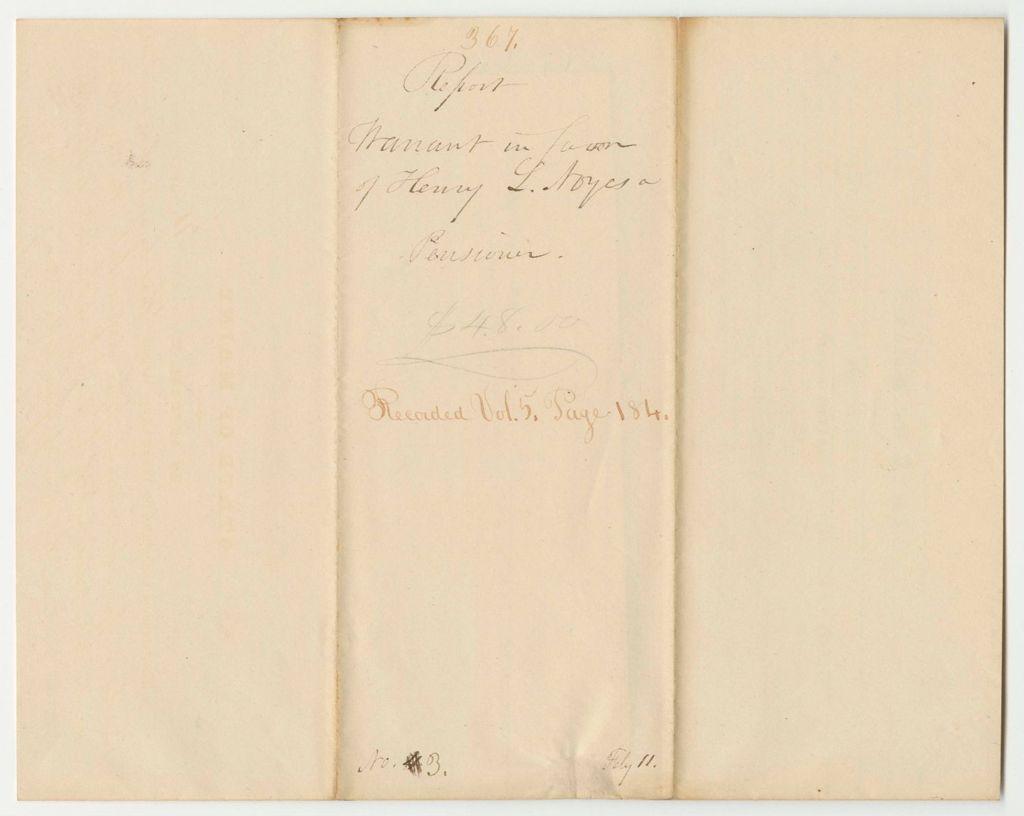 367.
Report
Warrant in favor
of Henry L. Noyes a
Pensioner.
$48.00
Recorded Vol. 5. Page 184.
No. 3.
Feby 11.